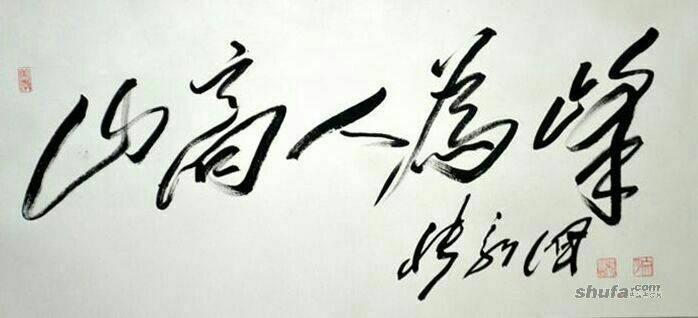 山高人為峰
shufa.com